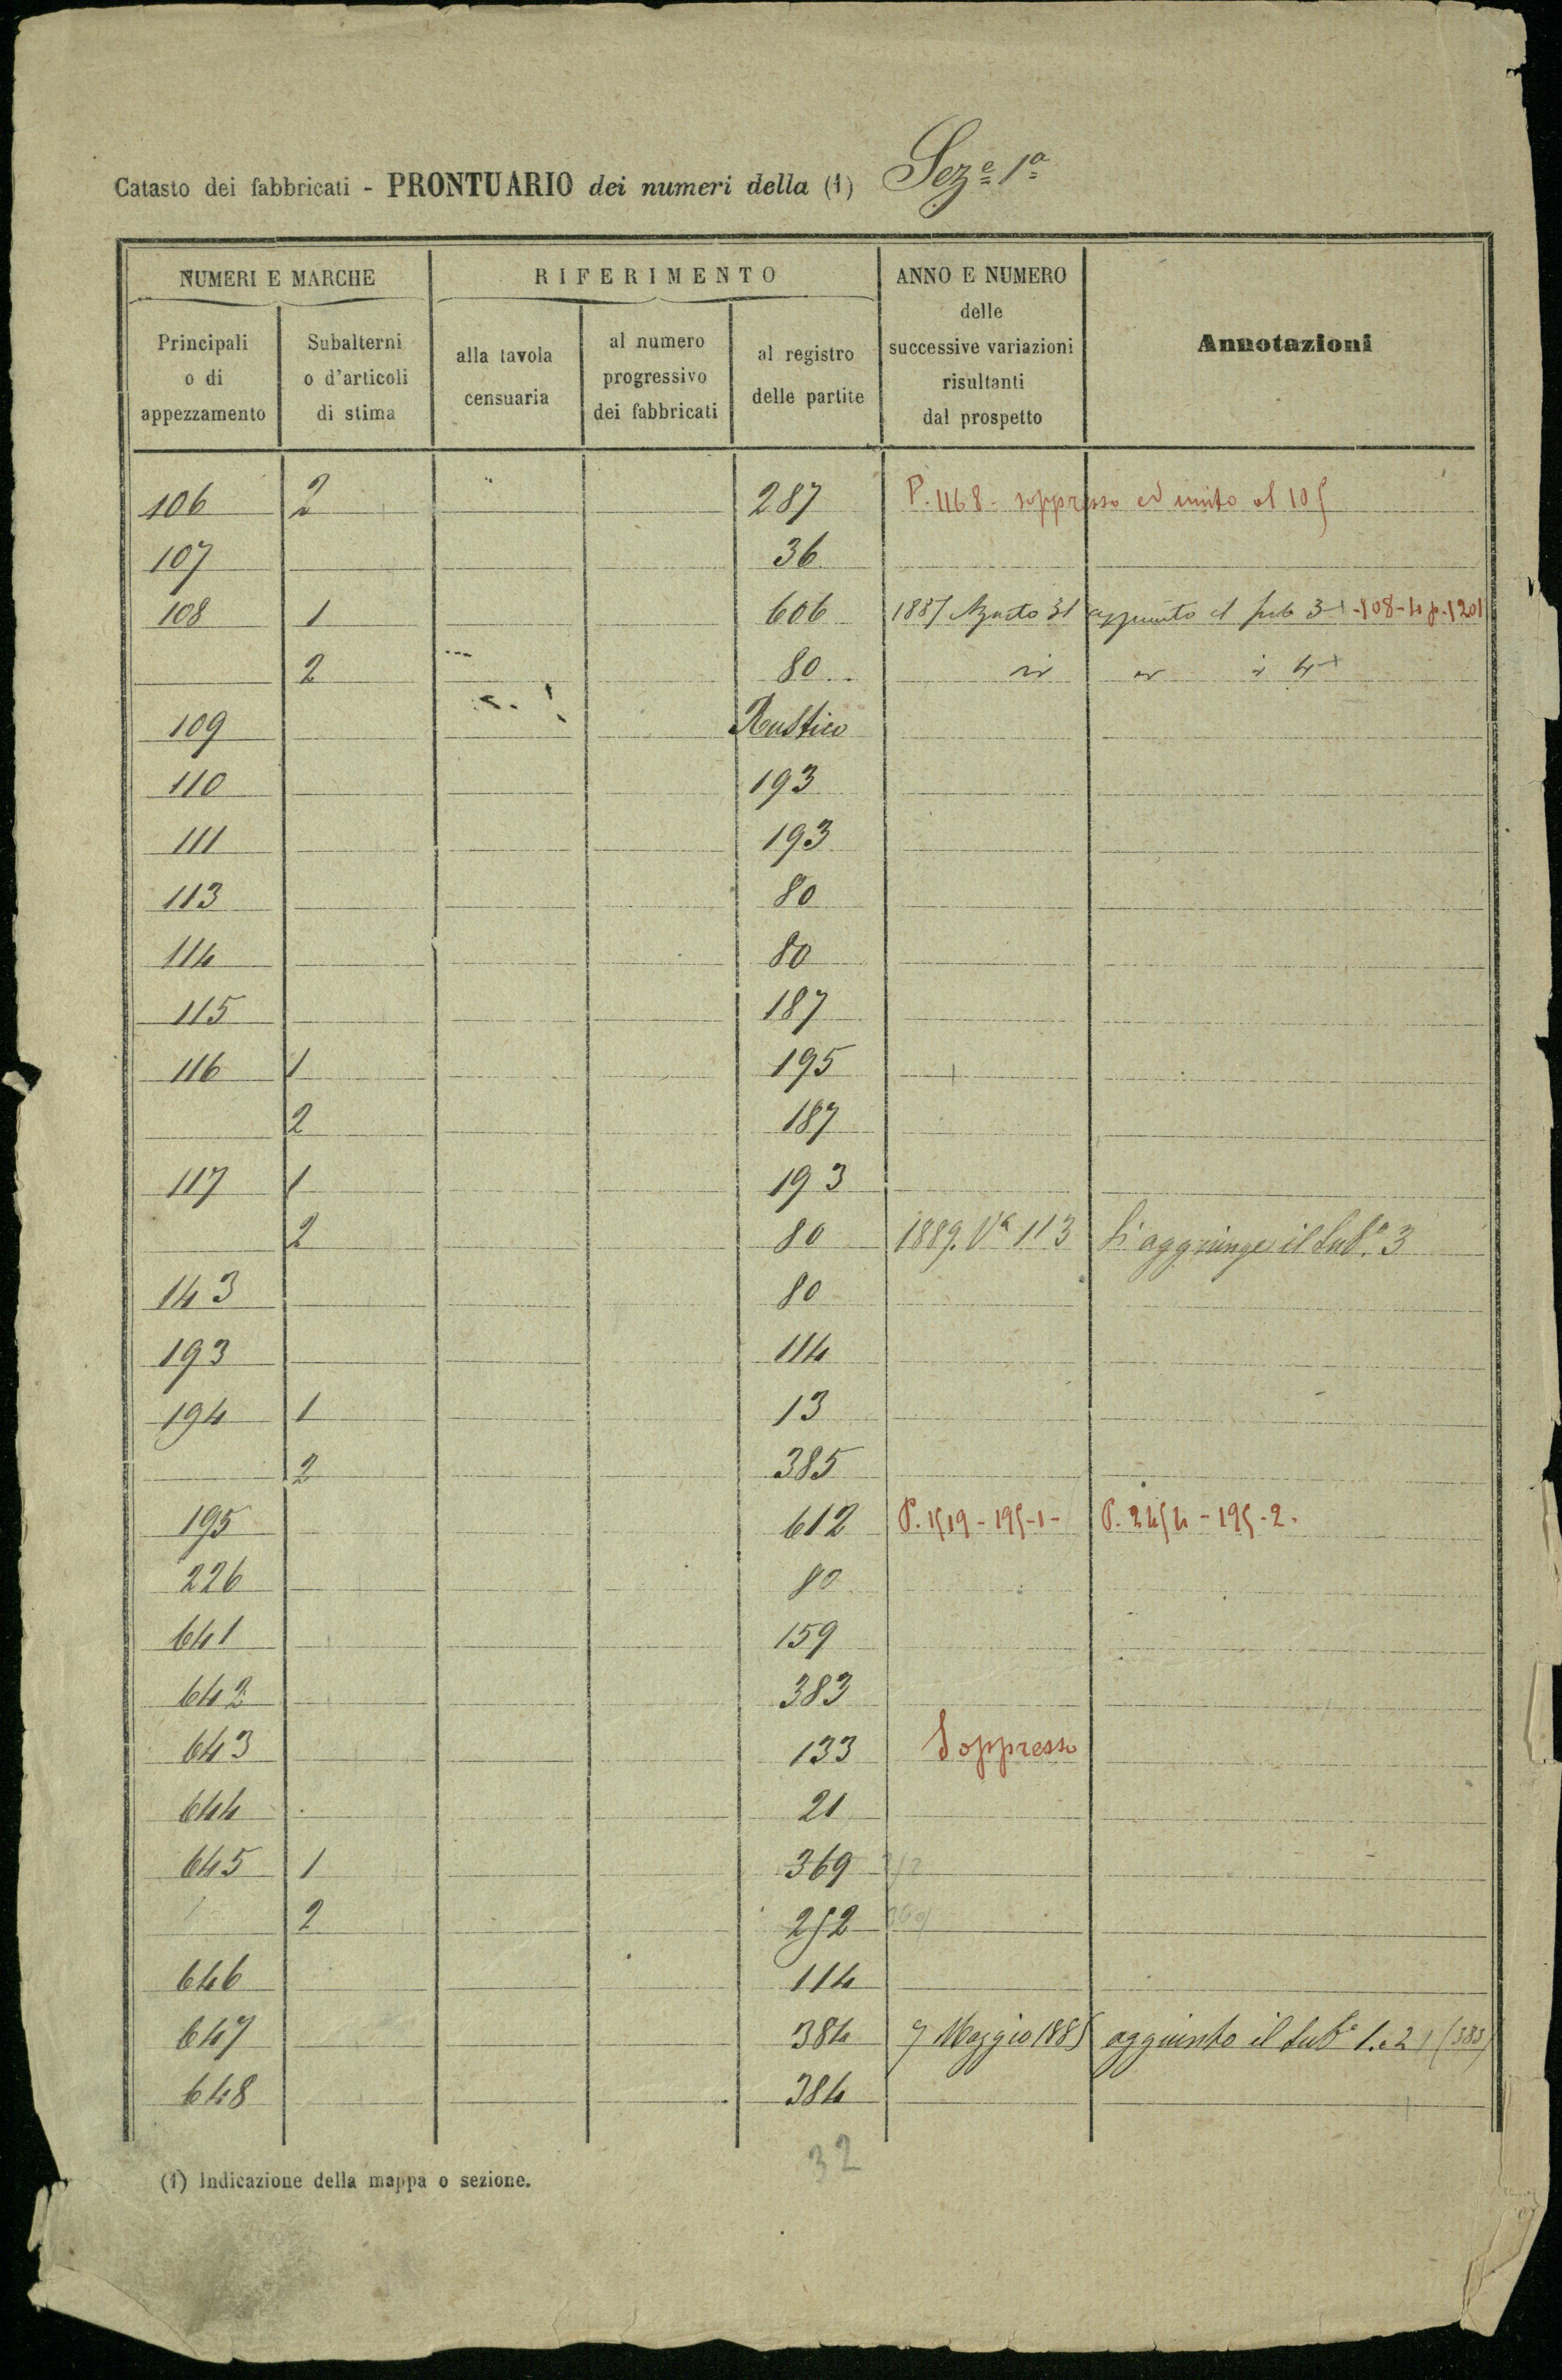 Catasto dei fabbricati - PRONTUARIO dei numeri della (1) Seze 1a
NUMERI E MARCHE
RIFERIMENTO
ANNO E NUMERO
delle
successive variazioni
risultanti
dal prospetto
Annotazioni
Principali
o di
appezzamento
Subalterni
o d'articoli
di stima
alla tavola
censuaria
al numero
progressivo
dei fabbricati
al registro
delle partite
106 2 287 P. 1168 - soppresso ed unito al 105
107 36
108 1 606 1887 Agosto 31 aggiunto il sub 3 - 108-4 p. 1201
2 80 4
109 Rustico
110 193
111 193
113 80
114 80
115 187
116 1 195
2 187
117 1 193
2 80 1889. Va 113 Si aggiunge il Subo. 3
143 80
193 114
194 1 13
2 385
195 612 P. 1519 - 195-1- P. 2454 - 195-2.
226 80
641 159
642 383
643 133 Soppresso
644 21
645 1 369
2 252
646 114
647 384 7 Maggio 1885 aggiunto il Subo 1.e2 (383)
648 384
32
(1) Indicazione della mappa o sezione.